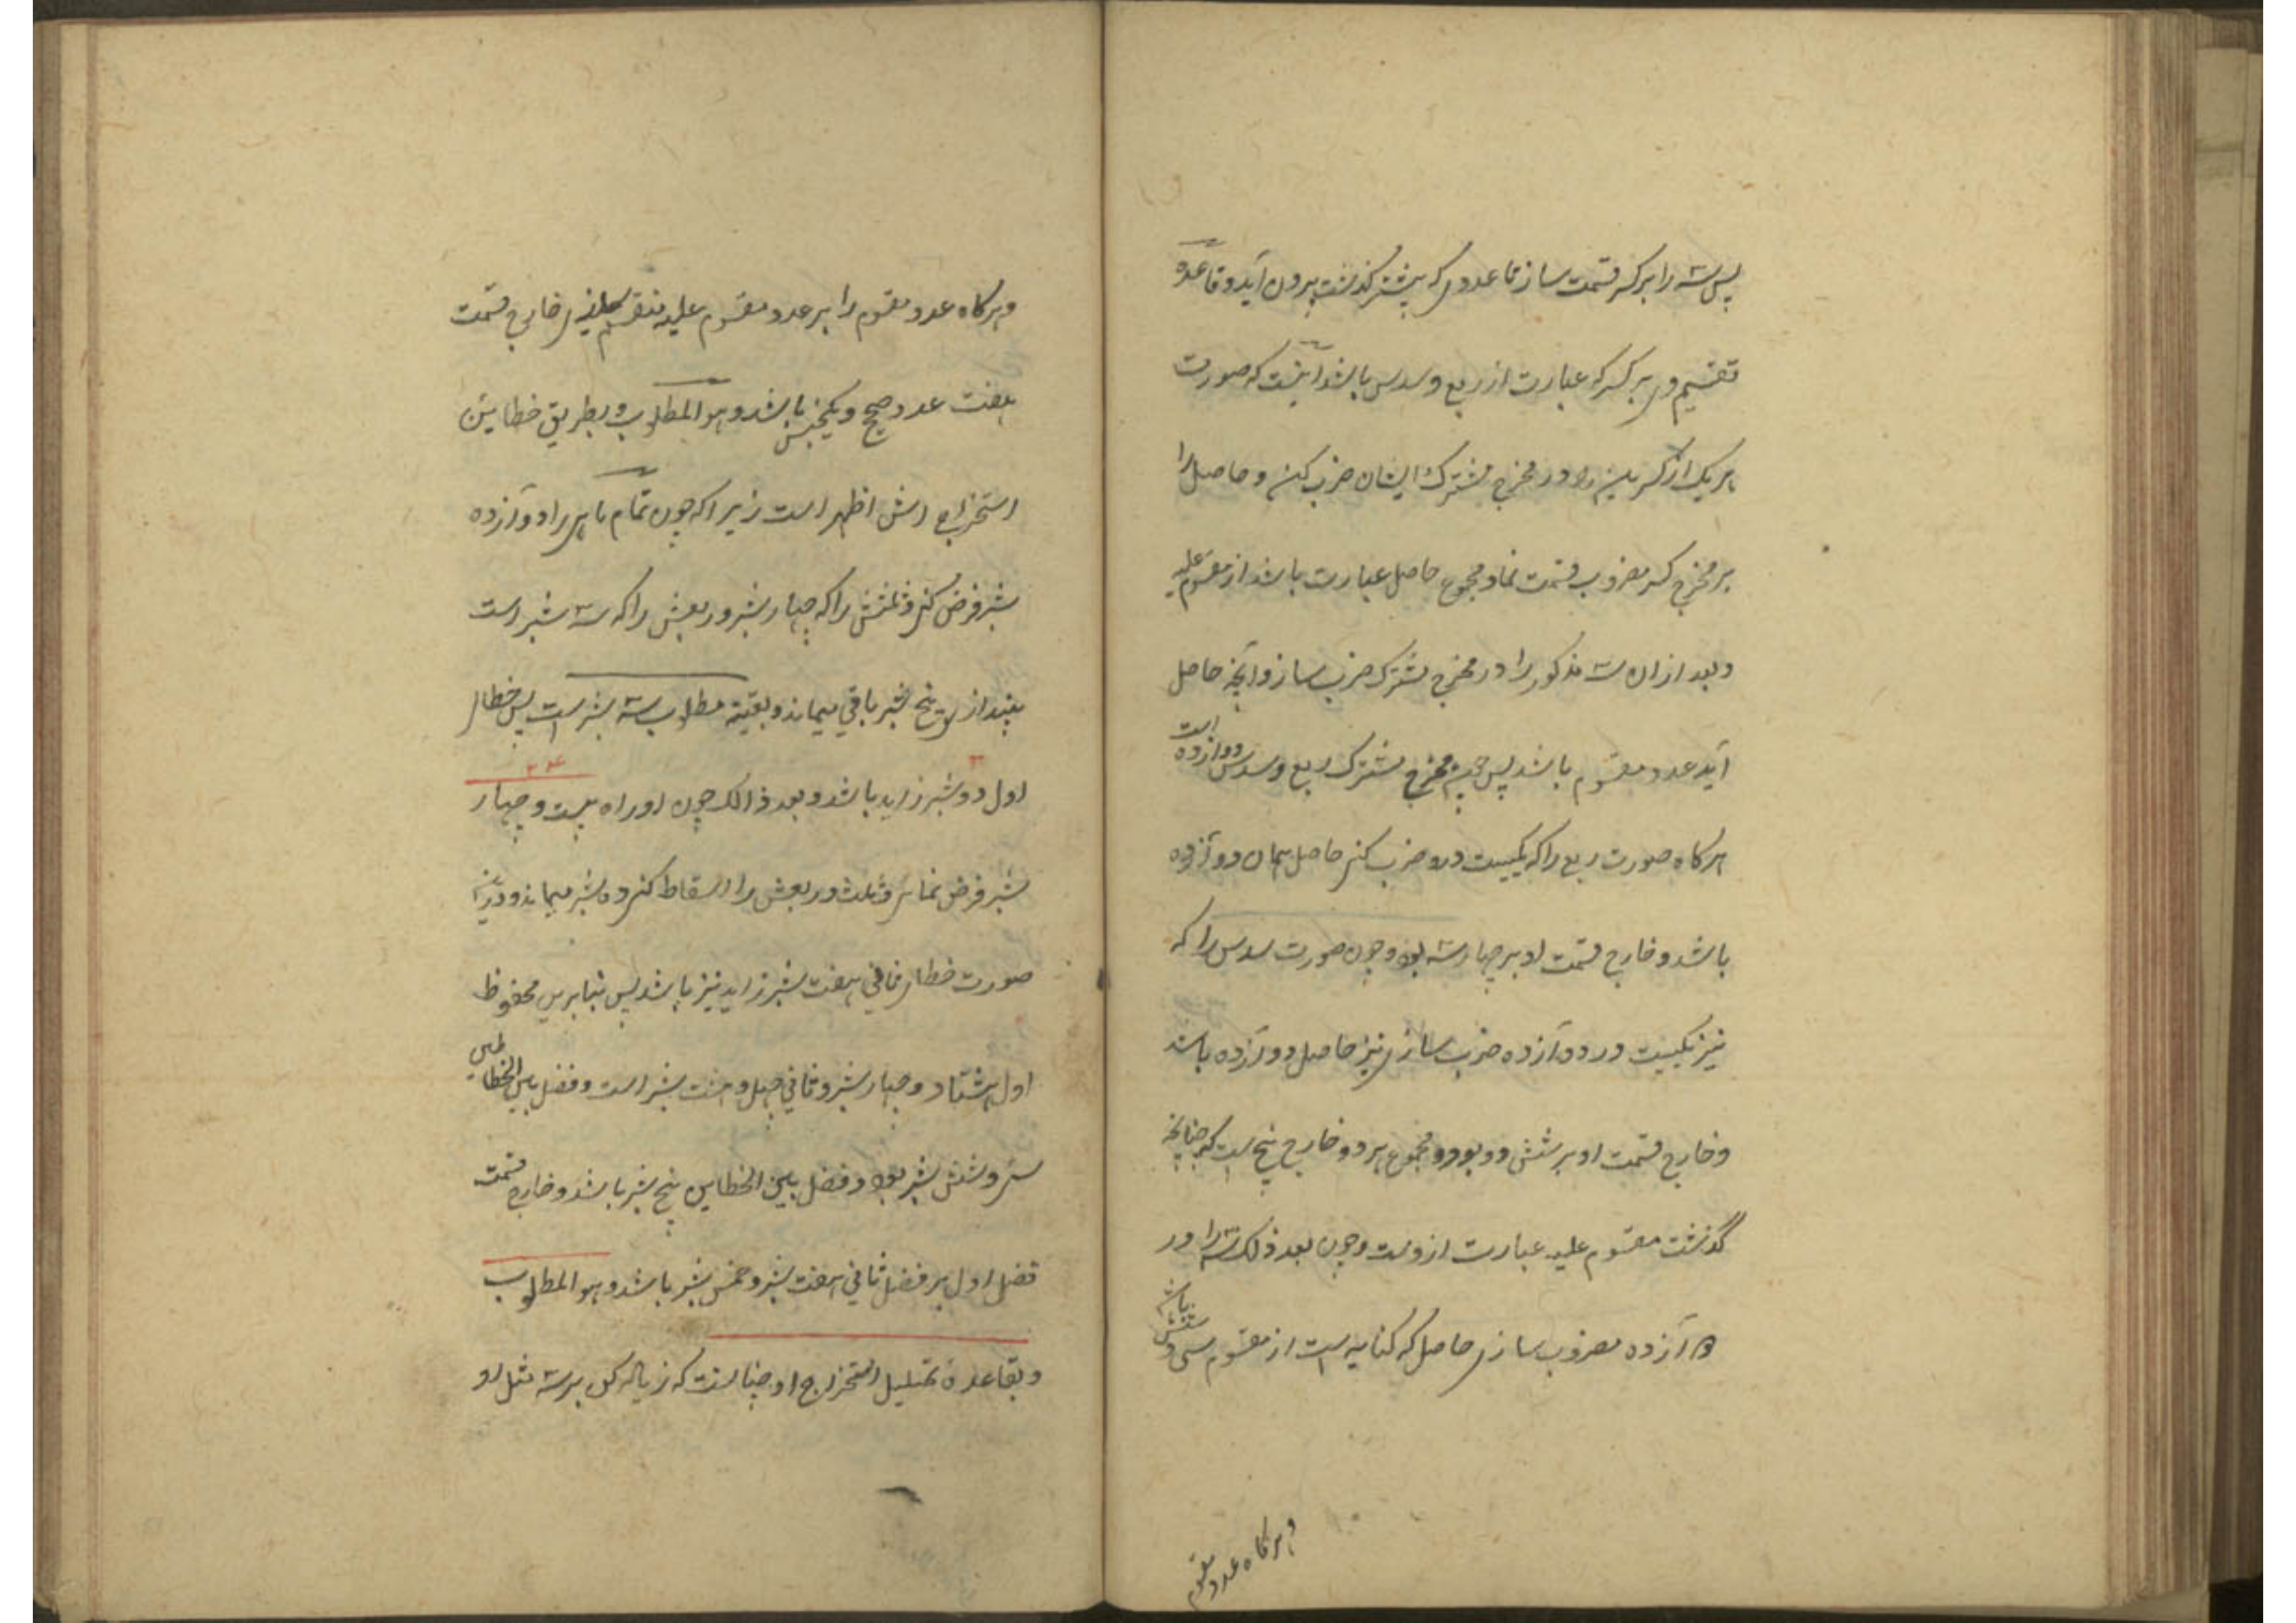 پس سه را بر کسر قسمت ساز تا عددی که پیشتر گذشت بیرون آید و قاعده
تقسیم و بر کسر که عبارت از ربع و سدس باشد اینست که صورت
هر یک از کسرین را در مخرج مشترک ایشان ضرب کن و حاصل را
بر مخرج کسر مضروب قسمت نما و مجموع حاصل عبارت باشد از مقسوم علیه
و بعد ازان سه مذکور را در مخرج مشترک ضرب ساز و آنچه حاصل
آید عدد مقسوم باشد پس چون مخرج مشترک ربع و سدس دوازده است
هرگاه صورت ربع را که یکیست درو ضرب کنی حاصل همان دوازده
باشد و خارج قسمت او بر چهار سه بود و چون صورت سدس را که
نیز یکیست در دوازده ضرب سازی نیز حاصل دوازده باشد
و خارج قسمت او بر شش دو بود و مجموع هر دو خارج پنج است که چنانچه
گذشت مقسوم علیه عبارت ازوست و چون بعد ذلک سه را در
دوازده مضروب سازی حاصل که کنایه است از مقسوم سی و شش باشد
و هرگاه عدد مقسوم
و هرگاه عدد مقسوم را بر عدد مقسوم علیه منقسم سازی خارج قسمت
هفت عدد صحیح و یکخمس باشد و هو المطلوب و بطریق خطاین
استخراج اش اظهر است زیرا که چون تمام ماهی را دوازده
شبر فرض کنی و ثلثش را که چهار شبر و ربعش را که سه شبر است
بیندازی پنج شبر باقی میماند و بقیته مطلوب سه شبر است پس خطا
اول دو شبر زاید باشد و بعد ذالک چون او را بیست و چهار
۲۴
شبر فرض نمای و ثلث و ربعش را اسقاط کنی ده شبر میماند و درین
صورت خطاء ثانی هفت شبر زاید نیز باشد پس بنابرین محفوظ
اول هشتاد و چهار شبر و ثانی چهل و هشت شبر است و فضل بین الخطاین
سی و شش شبر بود و فضل بین الخطاین پنج شبر باشد و خارج قسمت
فضل اول بر فضل ثانی هفت شبر و خمس شبر باشد و هو المطلوب
و بقاعدهٔ تحلیل استخراج او چنانست که زیاله کن بر سه مثل او